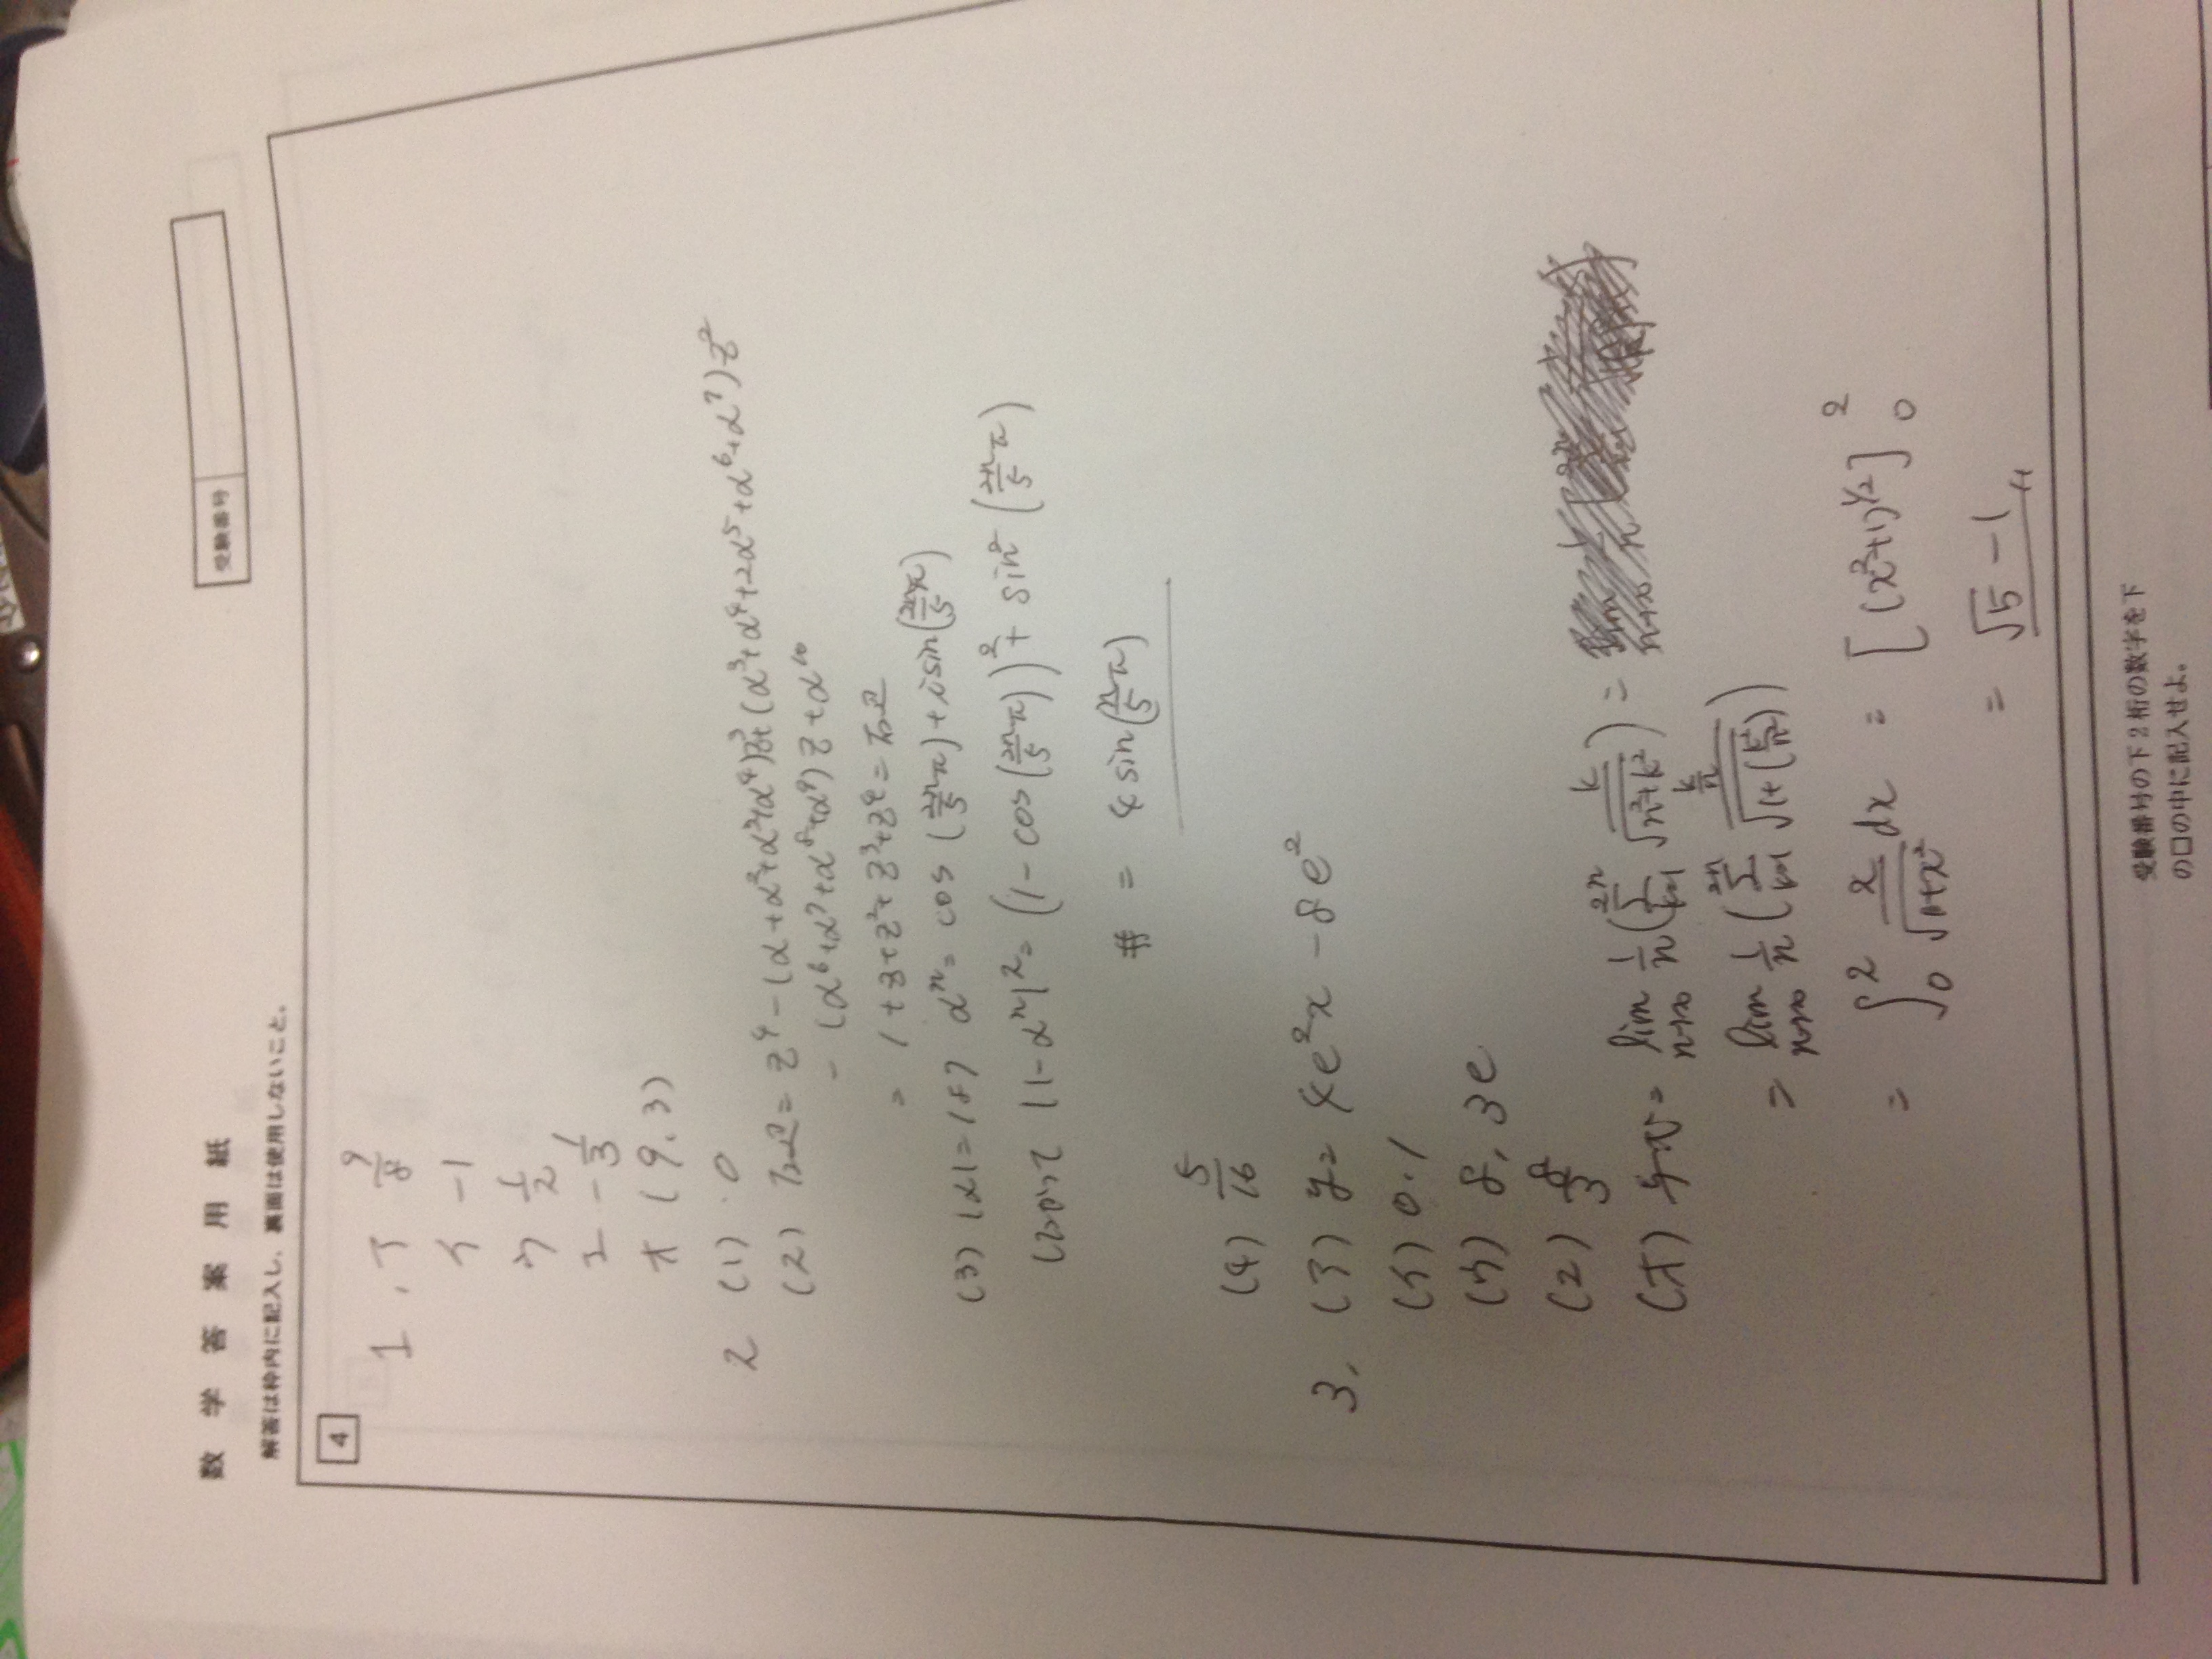 数学答案用紙
受験番号
解答は枠内に記入し、裏面は使用しないこと。
4
1. ア 9/8
イ -1
ウ 1/2
エ -1/3
オ (9.3)
2 (1) 0
(2) 右辺 = z⁴ - (α+α²+α³+α⁴)z³+(α³+α⁴+2α⁵+α⁶+α⁷)z²
- (α⁶+α⁷+α⁸+α⁹)z+α¹⁰
= 1+z+z²+z³+z⁴=左辺
(3) |α|=1より αⁿ= cos(2n/5 π)+isin(2n/5 π)
したがって |1-αⁿ|²= (1-cos(2n/5 π))²+ sin²(2n/5 π)
= 4sin(n/5 π)
(4) 5/16
3. (ア) y= 4e²x-8e²
(イ) 0.1
(ウ) 8, 3e
(エ) 8/3
(オ) 与式= lim n→∞ 1/n (Σ k=1 2n k/√(n²+k²)) =
= lim n→∞ 1/n (Σ k=1 2n (k/n)/√(1+(k²/n²)))
= ∫₀² x/√(1+x²) dx = [(x²+1)^1/2]₀²
= √5 -1
受験番号の下2桁の数字を下
の□の中に記入せよ。